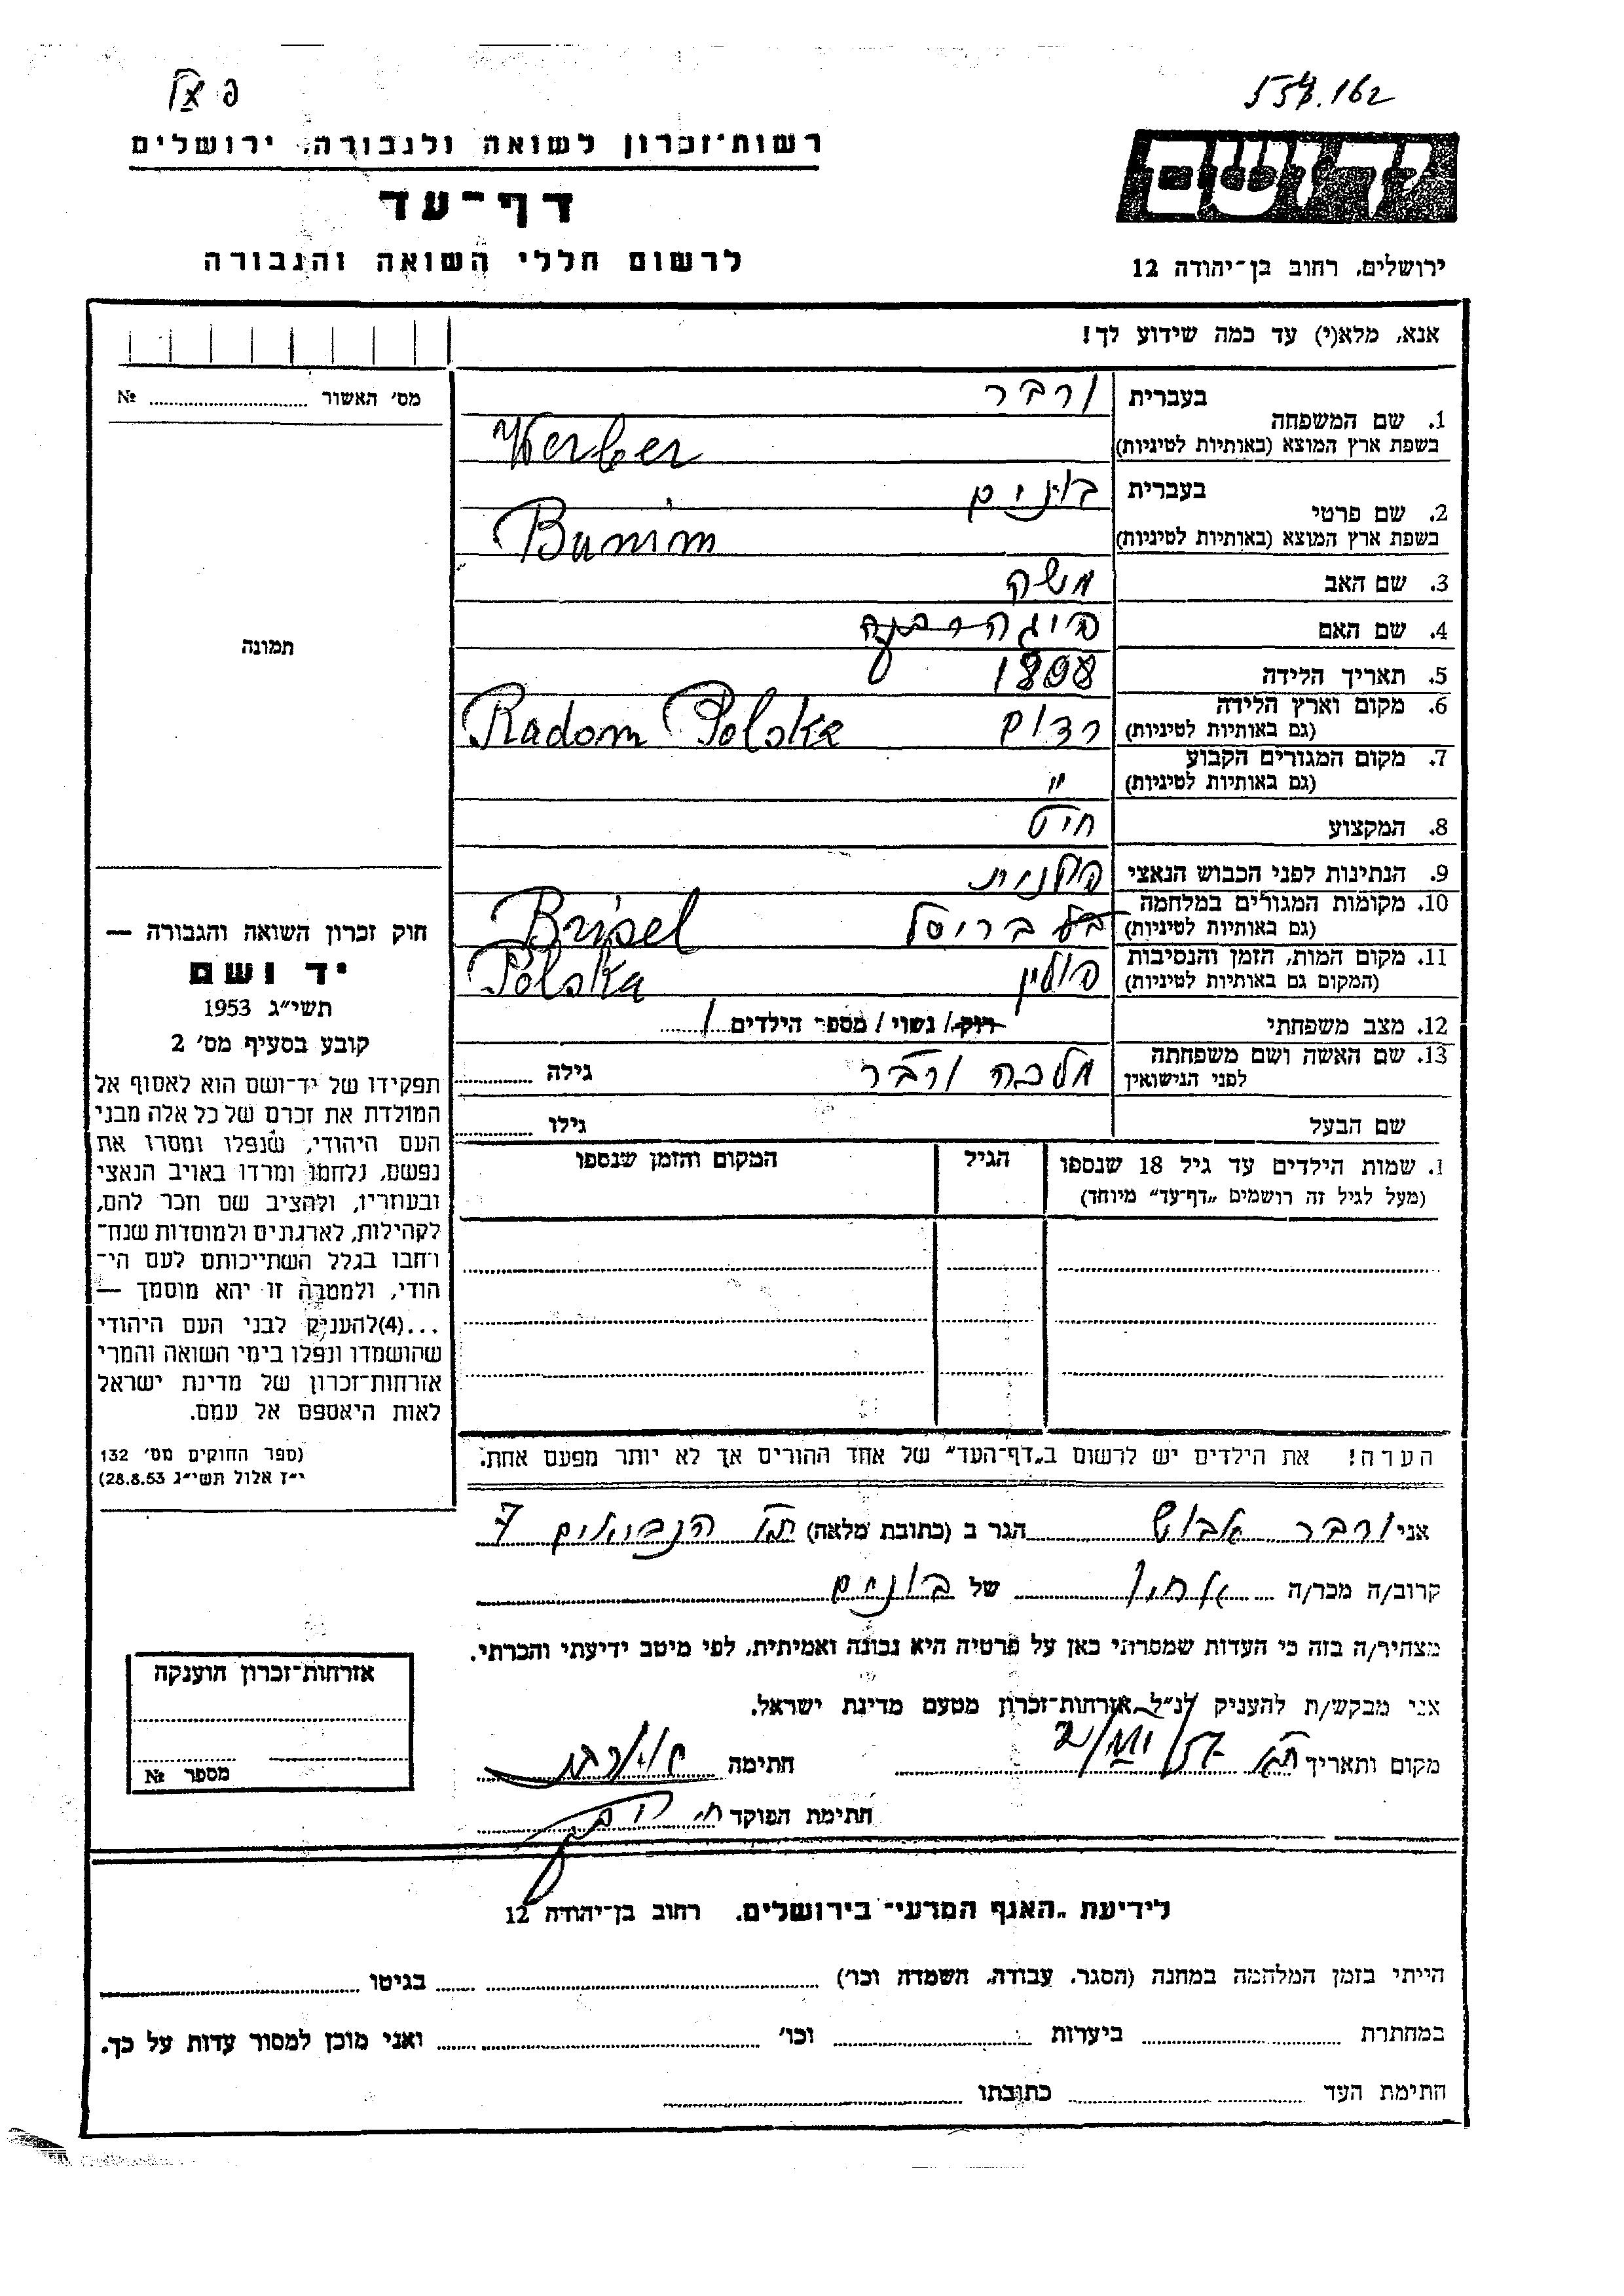 רשות־זכרון לשואה ולגבורה, ירושלים
דף־עד
לרשום חללי השואה והגבורה
יד ושם
ירושלים, רחוב בן־יהודה 12
אנא, מלא(י) עד כמה שידוע לך!
מס׳ האשור № 
1. שם המשפחה
בעברית ורבר
בשפת ארץ המוצא (באותיות לטיניות) Werber
2. שם פרטי
בעברית בונים
בשפת ארץ המוצא (באותיות לטיניות) Bunim
3. שם האב משה
4. שם האם
5. תאריך הלידה 1898
6. מקום וארץ הלידה (גם באותיות לטיניות) רדום Radom Polska
7. מקום המגורים הקבוע (גם באותיות לטיניות) "
8. המקצוע חיט
9. הנתינות לפני הכבוש הנאצי פולנית
10. מקומות המגורים במלחמה (גם באותיות לטיניות) בריסל Brisel
11. מקום המות, הזמן והנסיבות (המקום גם באותיות לטיניות) פולין Polska
12. מצב משפחתי רוק/ נשוי/ מספר הילדים 1
13. שם האשה ושם משפחתה לפני הנישואין מלכה ורבר גילה
שם הבעל גילו
תמונה
חוק זכרון השואה והגבורה —
יד ושם
תשי״ג 1953
קובע בסעיף מס׳ 2
תפקידו של יד־ושם הוא לאסוף אל
המולדת את זכרם של כל אלה מבני
העם היהודי, שנפלו ומסרו את
נפשם, נלחמו ומרדו באויב הנאצי
ובעוזריו, ולהציב שם וזכר להם,
לקהילות, לארגונים ולמוסדות שנח־
רחבו בגלל השתייכותם לעם הי־
הודי, ולמטרה זו יהא מוסמך —
...(4)להעניק לבני העם היהודי
שהושמדו ונפלו בימי השואה והמרי
אזרחות־זכרון של מדינת ישראל
לאות היאספם אל עמם.
(ספר החוקים מס׳ 132
י״ז אלול תשי״ג 28.8.53)
1. שמות הילדים עד גיל 18 שנספו הגיל המקום והזמן שנספו
(מעל לגיל זה רושמים „דף־עד״ מיוחד)
הערה! את הילדים יש לרשום ב„דף־העד״ של אחד ההורים אך לא יותר מפעם אחת.
אני ורבר אבוש הגר ב (כתובת מלאה) ת״א הנביאים 7
קרוב/ה מכר/ה אחיו של בונים
מצהיר/ה בזה כי העדות שמסרתי כאן על פרטיה היא נכונה ואמיתית, לפי מיטב ידיעתי והכרתי.
אני מבקש/ת להעניק לנ״ל אזרחות־זכרון מטעם מדינת ישראל.
מקום ותאריך ת״א חתימה
חתימת הפוקד
אזרחות־זכרון הוענקה
מספר №
לידיעת „האגף המדעי״ בירושלים. רחוב בן־יהודה 12
הייתי בזמן המלחמה במחנה (הסגר, עבודה, השמדה וכו׳) בגיטו
במחתרת ביערות וכו׳ ואני מוכן למסור עדות על כך.
חתימת העד כתובתו